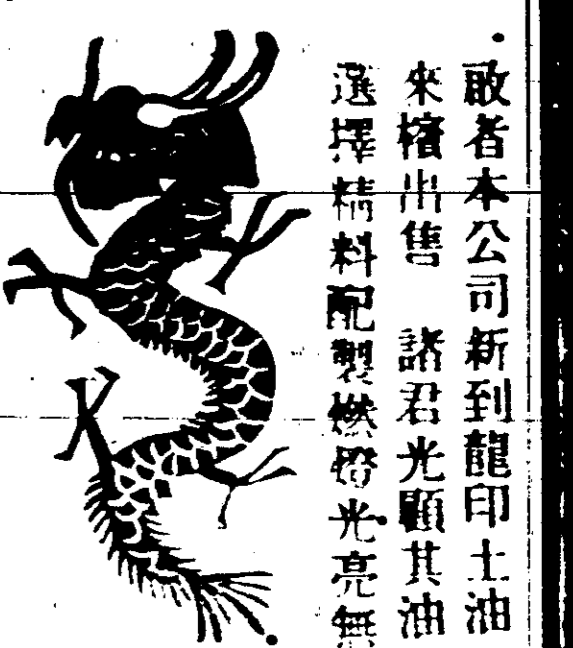 敢者本公司新到龍印土油
來檀出售　諸君光顧其油
選擇精料配製燃燈光亮無